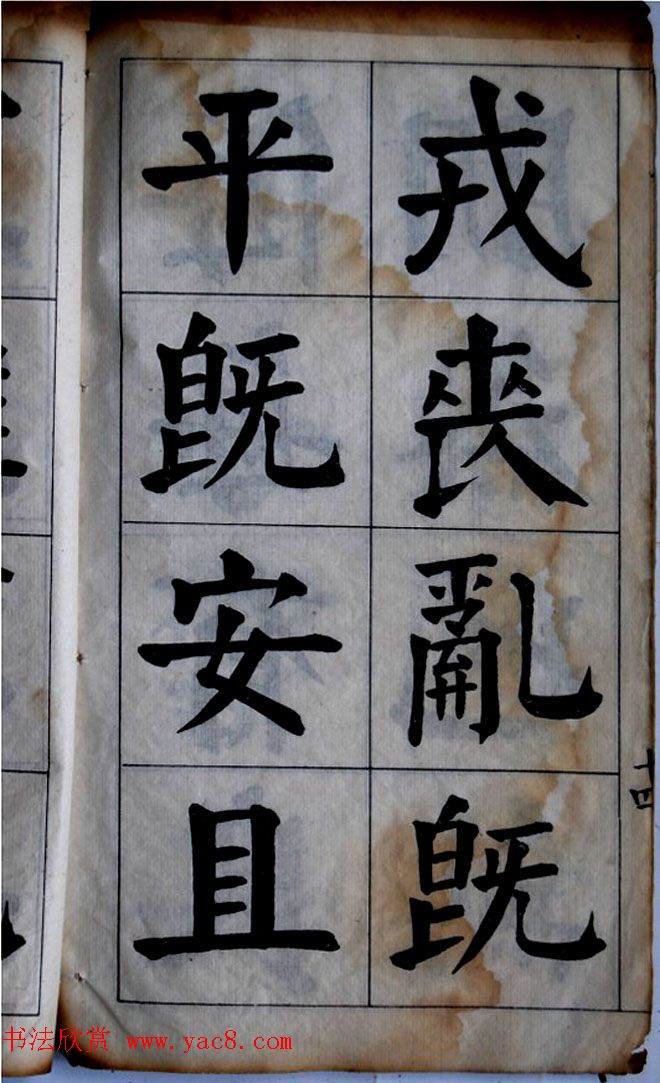 戎丧亂既
平既安且
十四
书法欣赏 www.yac8.com